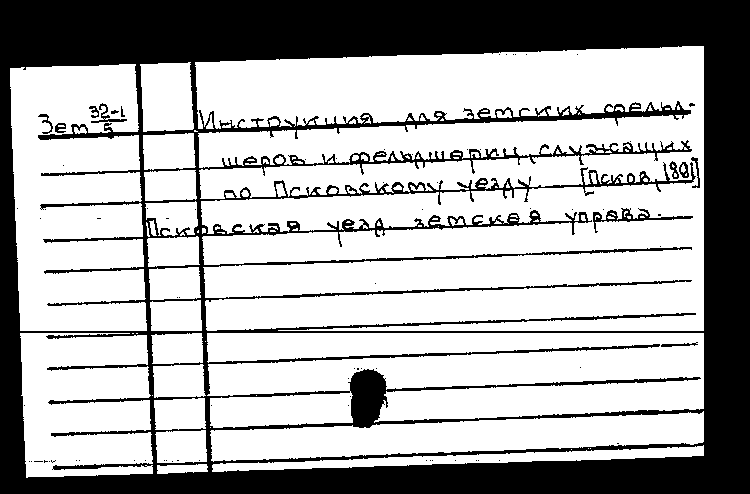 Зем 32-1/5 Инструкция для земских фельд-
шеров и фельдшериц, служащих
по Псковскому уезду [Псков,
Псковская уезд. земская управа.